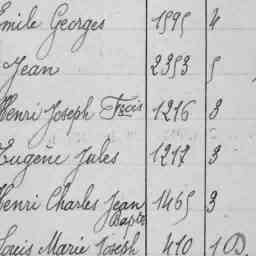 Emile Georges 1595 4
Jean 2353 5
Henri Joseph Fçois 1216 8
Eugène Jules 1217 3
Henri Charles Jean Bapte 1465 3
Louis Marie Joseph 410 1 D.